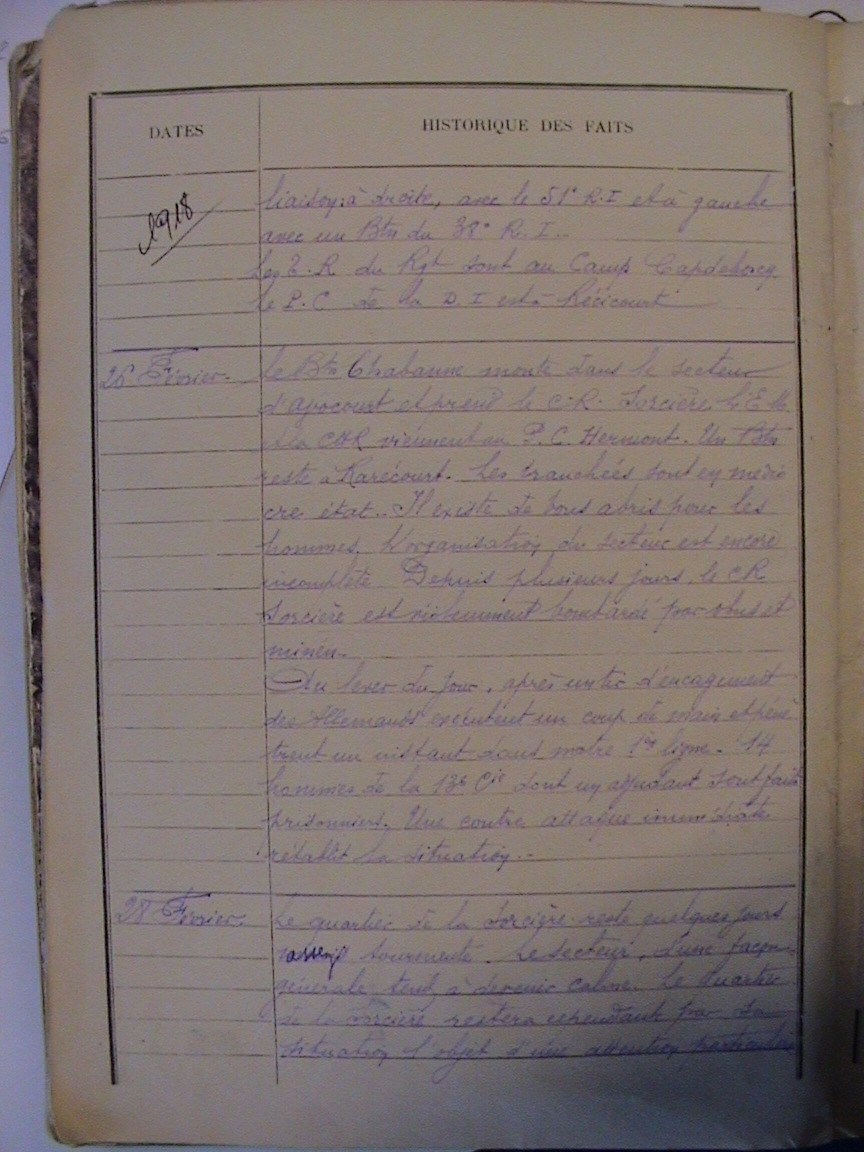 DATES
HISTORIQUE DES FAITS
1918
liaison à droite, avec le 51e R.I et à gauche
avec un Btn du 38e R.I.-
Les T.R du Rgt sont au Camp Capdeboscq
le P.C de la D.I est à Récicourt
26 Février.
Le Btn Chabanne monte dans le secteur
d'Avocourt et prend le C.R. Sorcière. L'E.M.
et la CHR viennent au P.C. Hermont. Un Btn
reste à Rarécourt. Les tranchées sont en médio
cre état.. Il existe de bons abris pour les
hommes. L'organisation du secteur est encore
incomplète Depuis plusieurs jours, le CR
Sorcière est violemment bombardé par obus et
minen.
Au lever du jour, après un tir d'encagement
des Allemands exécutent un coup de main et péné
trent un instant dans notre 1re ligne. 14
hommes de la 13e Cie dont un adjudant sont faits
prisonniers. Une contre attaque immédiate
rétablit la situation.-
28 Février.
Le quartier de la Sorcière reste quelques jours
assez tourmenté. Le secteur, d'une façon
générale tend à devenir calme. Le quartier
de la Sorcière restera cependant par sa
situation l'objet d'une attention particulière